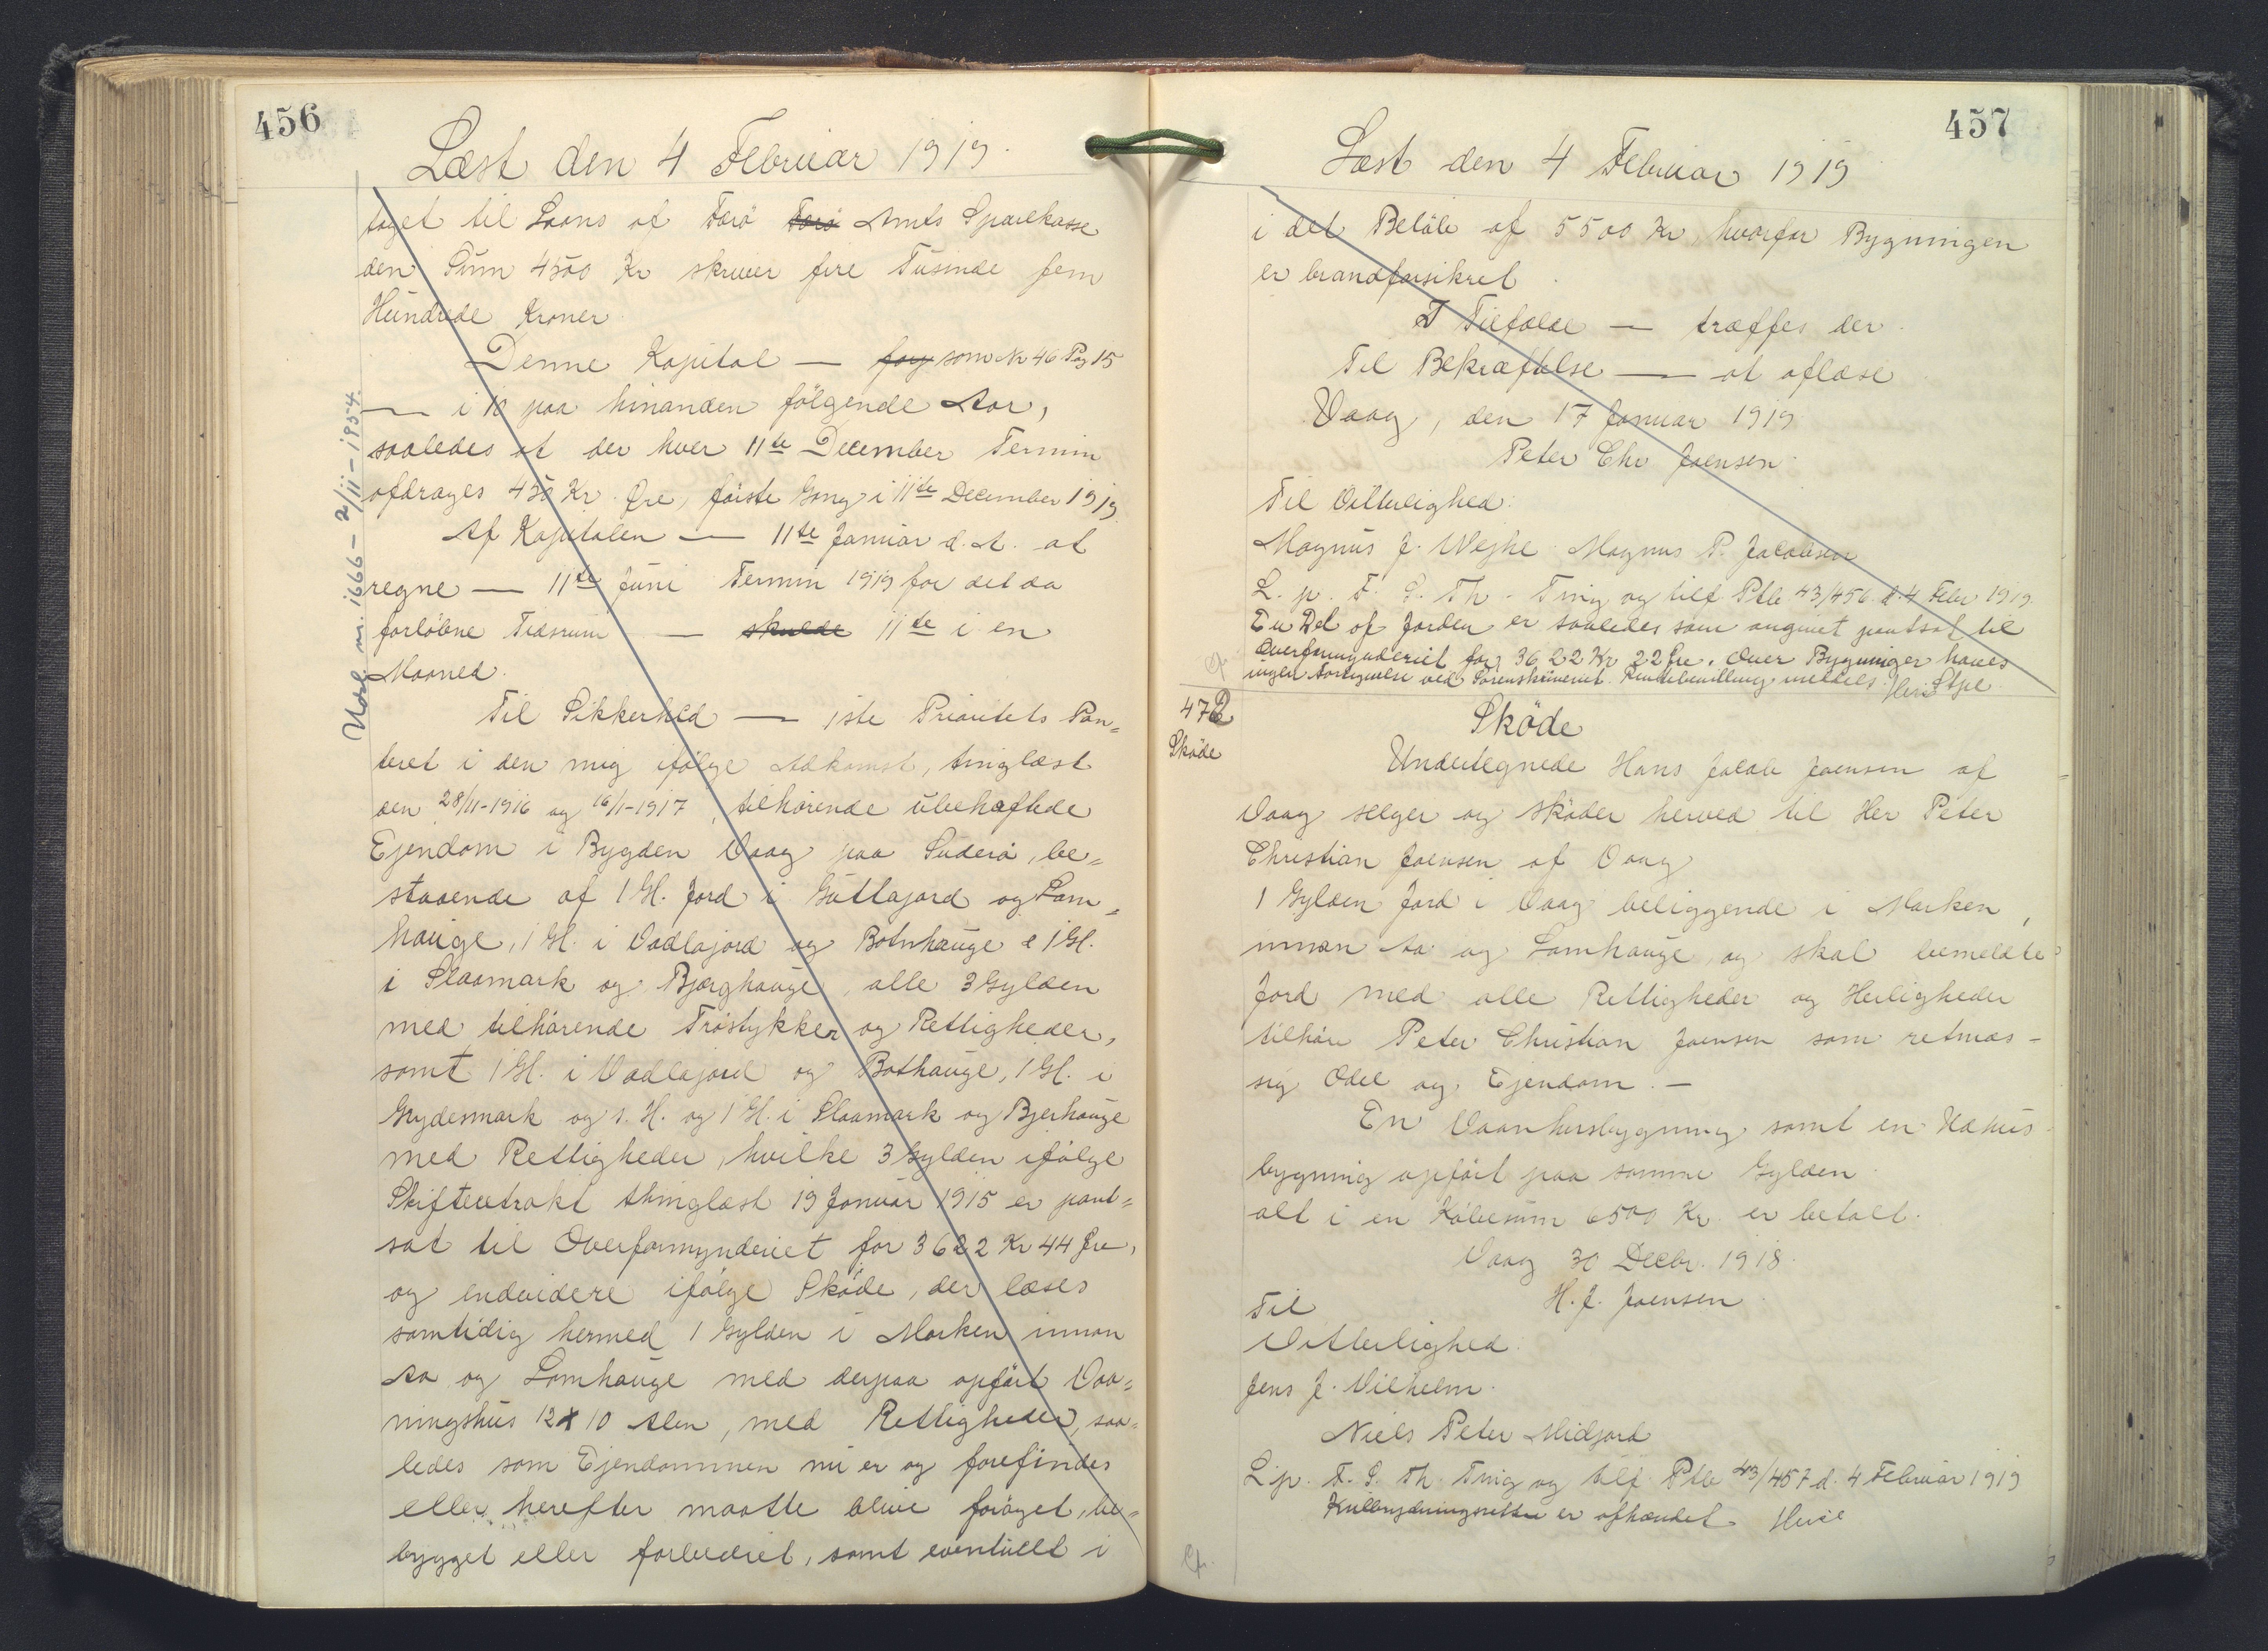 456
Læst den 4 Februar 1919.
taget til Laans af Færö Færö Amts Sparekasse
den Sum 4500 Kr skriver fire Tusinde fem
Hundrede Kroner
Denne Kapital — som Nr 46 Pag 15
— i 10 paa hinanden fölgende Aar,
saaledes at der hver 11te December Termin
afdrages 450 Kr. Øre, förste Gang i 11te December 1919
Af Kapitalen — 11te Januar d. A. at
regne — 11te Juni Termin 1919 for det da
forlöbne Tidsrum — skulde 11te i en
Maaned.
Til Sikkerhed — 1ste Prioritets Pan=
teret i den mig ifölge Adkomst, tinglæst
den 28/11-1916 og 16/1-1917, tilhörende ubehæftede
Ejendom i Bygden Vaag paa Suderö, be=
staaende af 1 Gl. Jord i Guttajord og Lom=
hauge, 1 Gl. i Vadlajord og Botnhauge & 1 Gl.
i Slaamark og Bjarghauge, alle 3 Gylden
med tilhörende Tröstykker og Rettigheder,
samt 1 Gl. i Vadlajord og Bothauge, 1 Gl. i
Grydesmark og s. H. og 1 Gl. i Slaamark og Bjerhauge
med Rettigheder, hvilke 3 Gylden ifölge
Skifteextrakt thinglæst 19 Januar 1915 er pant=
sat til Overformynderiet for 3622 Kr 44 Øre,
og endvidere ifölge Sköde, der læses
samtidig hermed 1 Gylden i Marken innan
Aa og Lomhauge med derpaa opfört Vaa=
ningshus 12 x 10 Alen, med Rettigheder, saa=
ledes som Ejendommen nu er og forefindes
eller herefter maatte blive foröget, be=
bygget eller forbedret, samt eventuelt i
Udsl. nr. 1666 - 2/11-1954.
457
Læst den 4 Februar 1919
i det Belöb af 5500 Kr, hvorfor Bygningen
er brandforsikret.
I Tilfælde — træffes der
Til Bekræftelse — at aflæse
Vaag, den 17 Januar 1919
Peter Chr Joensen
Til Vitterlighed:
Magnus J. Vejhe Magnus P. Jacobsen
L. p. F. S. Th. Ting og tilf. Ptb 43/456 d. 4 Febr 1919
En Del af Jorden er saaledes som angivet pantsat til
Overformynderiet for 3622 Kr 22 Øre. Over Bygninger haves
ingen Fortegnelse ved Sorenskriveriet. Rentebevilling meddels.
472
Sköde
Sköde
Undertegnede Hans Jacob Joensen af
Vaag sælger og sköder herved til Her Peter
Christian Joensen af Vaag
1 Gylden Jord i Vaag beliggende i Marken,
innan Aa og Lomhauge, og skal bemeldte
Jord med alle Rettigheder og Herligheder
tilhöre Peter Christian Joensen som retmæs-
sig Odel og Ejendom. —
En Vaanhusbygning samt en Udhus
bygning opfört paa samme Gylden
alt i en Köbesum 6500 Kr. er betalt.
Vaag 30 Decbr. 1918.
H. J. Joensen
Til
Vitterlighed.
Jens J. Vilhelm.
Niels Peter Midjord
L. p. F. S. Th. Ting og tilf. Ptb 43/457 d. 4 Februar 1919
Kulbrydningsretten er afhændet